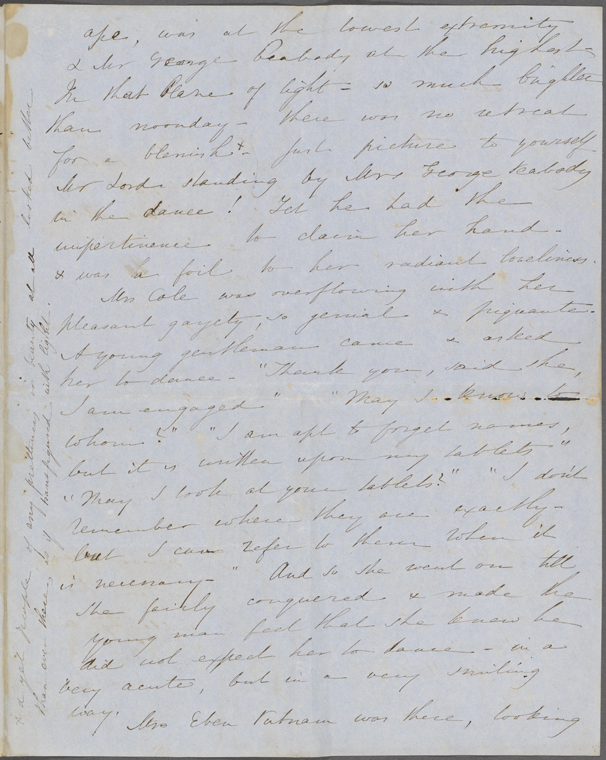 ape, was at the lowest extremity
& Mr George Peabody at the highest-
In that blaze of light - so much brighter
than noonday - there was no retreat
for a blemish & just picture to yourself
Mr Lord standing by Mrs George Peabody
in the dance! Yet he had the
impertinence to claim her hand -
& was a foil to her radiant loveliness.
Mrs Cole was overflowing with her
pleasant gayety, so genial & piquante.
A young gentleman came & asked
her to dance - "Thank you, said she,
I am engaged" "May I know to
whom?" "I am apt to forget names,
but it is written upon my tablets"
"May I look at your tablets?" "I don't
remember where they are exactly -
but I can refer to them when it
is necessary -" And so she went on till
she fairly conquered & made the
young man feel that she knew he
did not expect her to dance - in a
very acute, but in a very smiling
way.
Mrs Eben Putnam was there, looking
& as yet people of any pretence in beauty at all looked better
than ever there, as if transfigured with light.